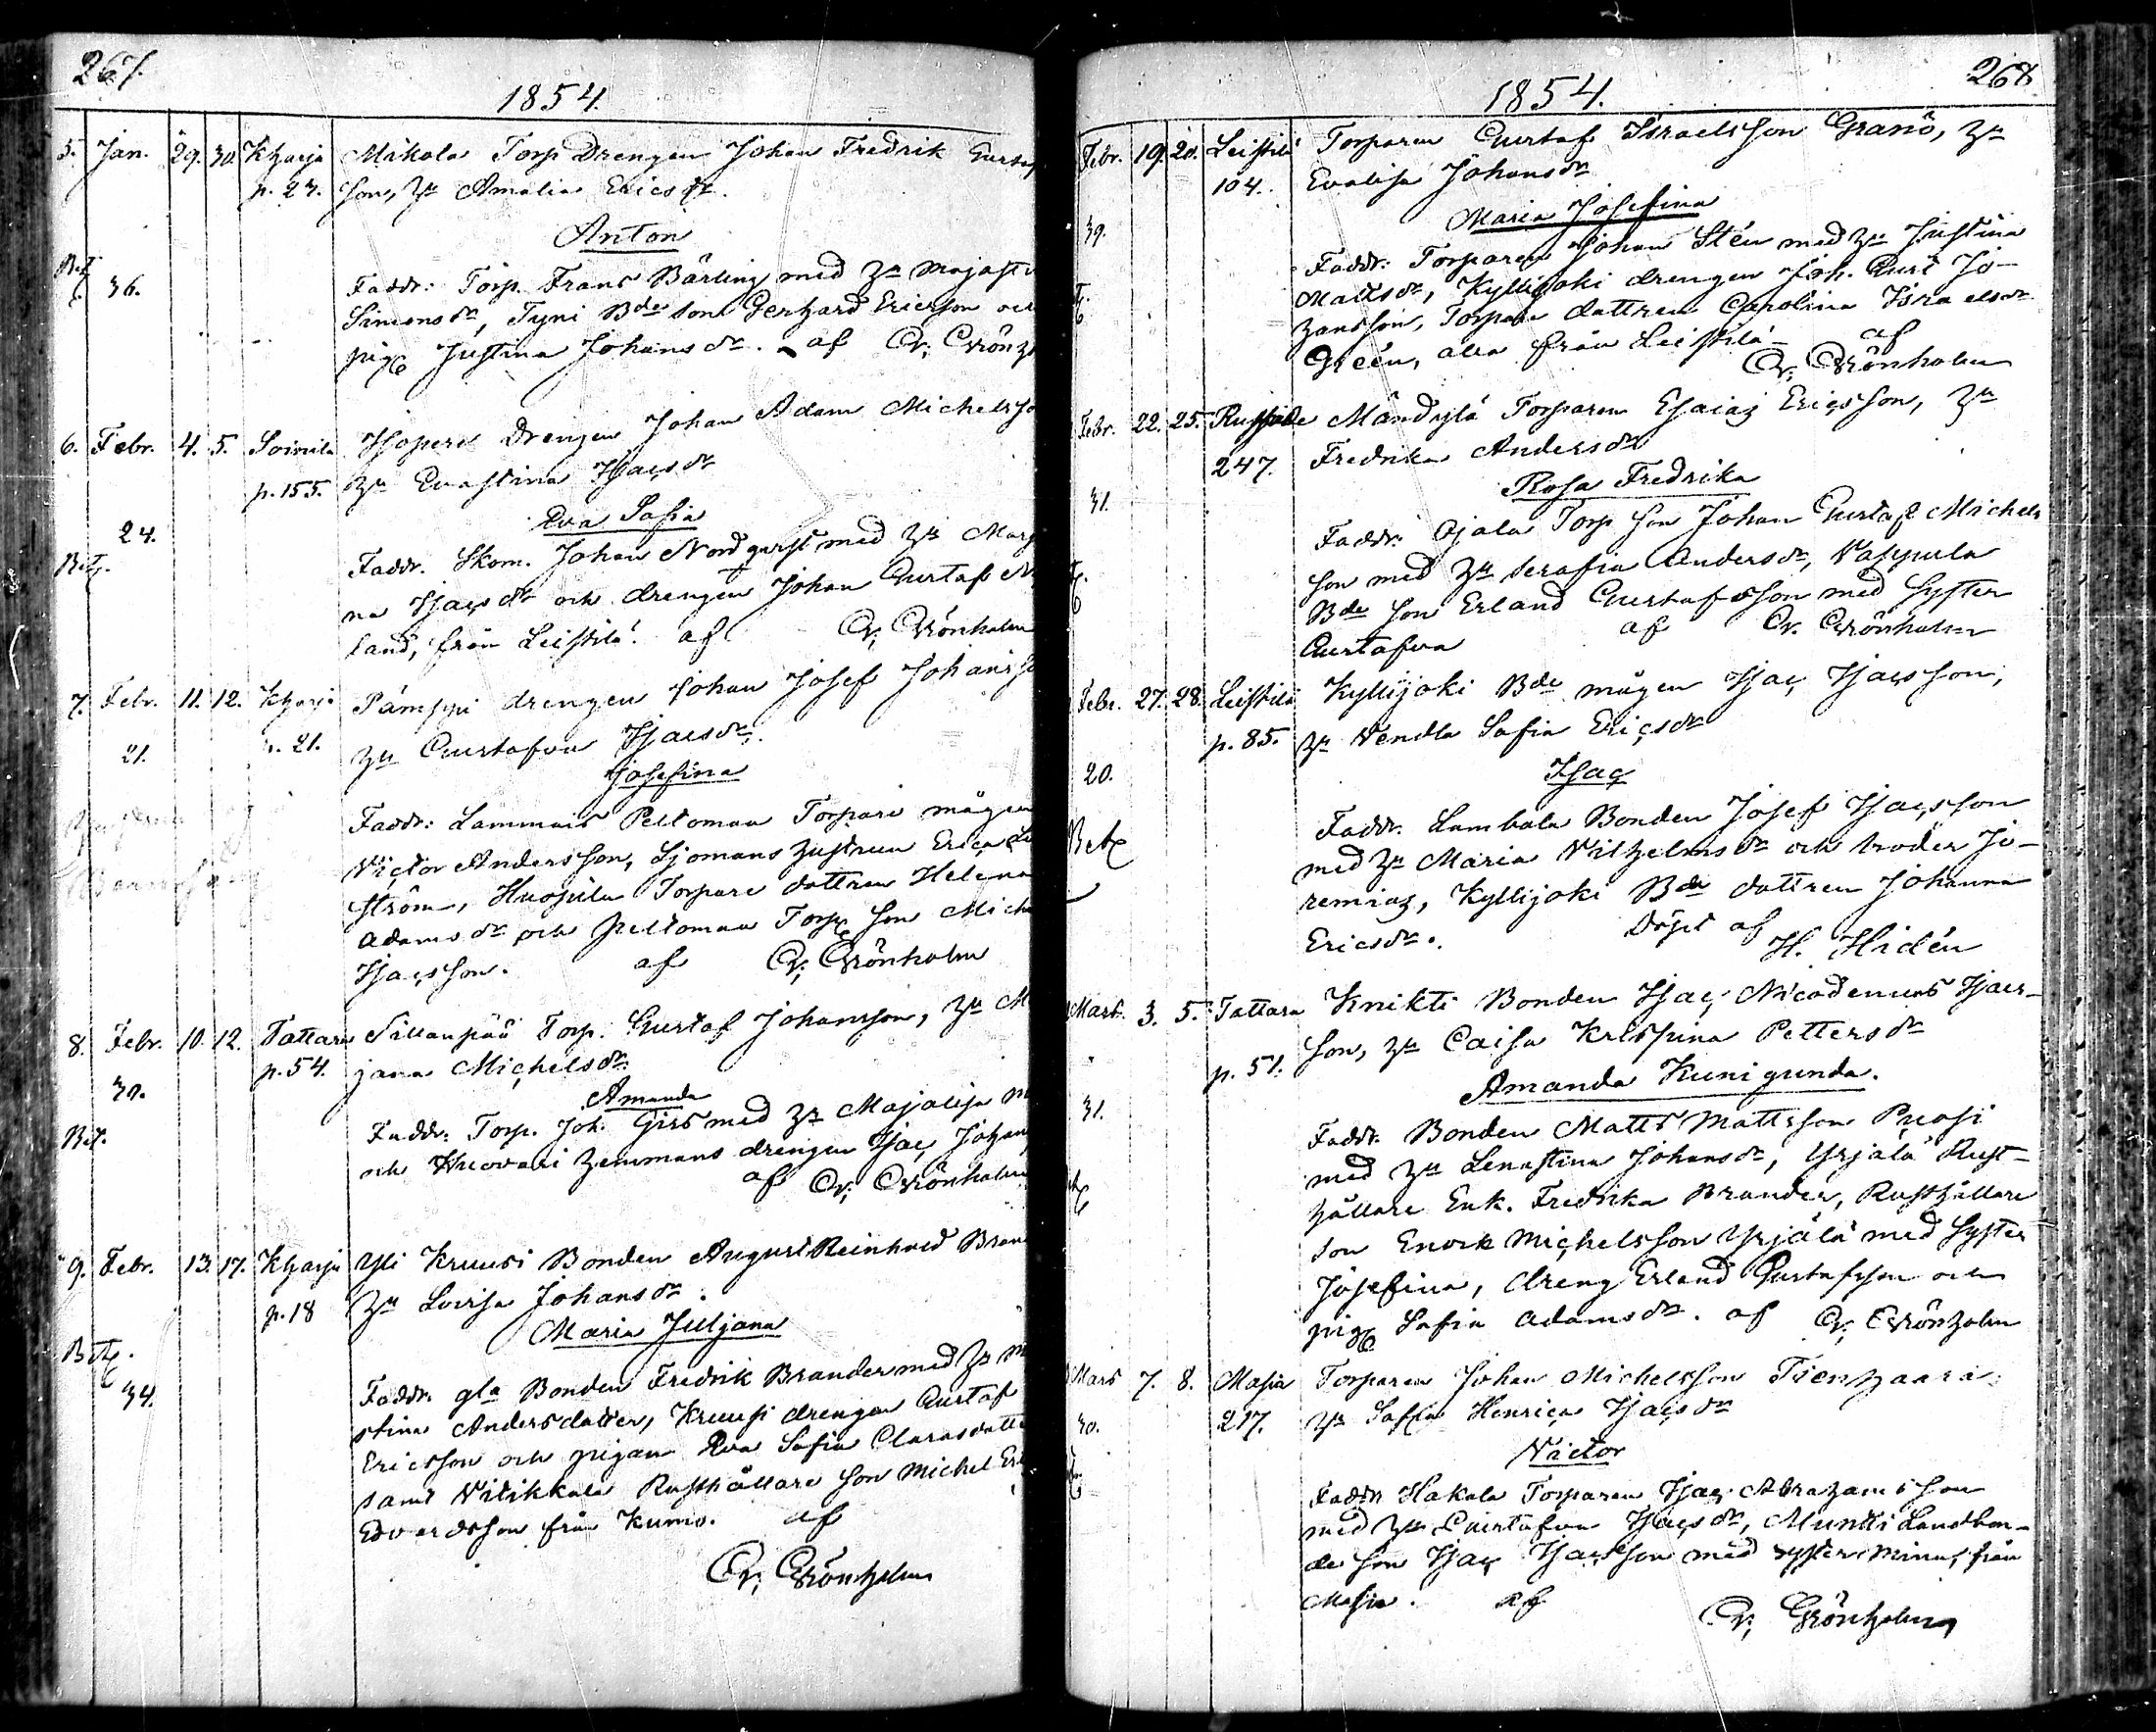 267.
1854.
5. Jan. 29. 30. Kharja Mikola Torp Drengen Johan Fredrik Gustaf
p. 23. son, hu Amalia Ericsdr.
Anton
Bet 36. Faddr: Torp. Frans Bärling med hu Majasti
Simonsdr, Tyni Bde son Gerhard Ericsson och
pig Justina Johansdr. af Gr. Grönh
6. Febr. 4. 5. Soinila drengen Johan Adam Michelsso
p. 155. hu Evastina Isacsdr
Eva Sofia
24. Faddr. Skom. Johan Nordqvist med hu Marj
Bet. na Isacsdr och drengen Johan Gustaf N
land, från Leistilä. af Gr. Grönholm
7. Febr. 11. 12. Kharja Pämppi drengen Johan Josef Johansso
21. p. 21. hu Gustafva Isacsdr.
Josefina
Faddr: Lammais Peltomaa Torpare mågen
Victor Andersson, Sjomans hustrun Erica Li
ström, Huopila Torpare dottren Helena
Adamsdr och Peltomaa Torp son Mich
Isacsson. af Gr. Grönholm
8. Febr. 10. 12. Tattara Sillanpää Torp. Gustaf Johansson, hu M
30. p. 54. jana Michelsdr.
Amanda
Bet. Faddr: Torp. Joh. Girs med hu Majalisa M
och Vuovari hemmans drengen Isac Johan
af Gr. Grönholm
9. Febr. 13. 17. Kharja Yli Kruusi Bonden August Reinhold Bran
p. 18 hu Lovisa Johansdr.
Maria Juljana
Bet. 34. Faddr. gla Bonden Fredrik Brander med hu M
stina Andersdotter, Kruusi drengen Gustaf
Ericsson och pigan Eva Sofia Clarasdotte
samt Vitikkala Rusthållare son Michel Eri
Edvardsson från Kumo. af
Gr. Grönholm
268
1854.
Febr. 19. 20. Leistilä Torparen Gustaf Israelsson Granö, hu
104. Evalisa Johansdr
Maria Josefina
39. Faddr: Torparen Johan Stén med hu Justina
Mattsdr, Kyllijoki drengen Joh. Gust Jo-
hansson, Torpare dottren Carolina Israelsdr
Gréén, alla från Leistilä af
Gr. Grönholm
Febr. 22. 25. Ruskila Mändylä Torparen Esaias Ericsson, hu
247. Fredrika Andersdr
Rosa Fredrika
31. Faddr: Ojala Torp son Johan Gustaf Michels
son med hu Serafia Andersdr, Vappula
Bde son Erland Gustafsson med Syster
Gustafva af Gr. Grönholm
Febr. 27. 28. Leistilä Kyllijoki Bde mågen Isac Isacsson,
p. 85. hu Vendla Sofia Ericsdr
20. Isac
Bet Faddr. Lambala Bonden Josef Isacsson
med hu Maria Vilhelmsdr och broder Je-
remias, Kyllijoki Bde dottren Johanna
Ericsdr. Döpt af
H. Hidén
Mars. 3. 5. Tattara Knikti Bonden Isac Nicodemus Isacs-
p. 51. son, hu Caisa Krispina Pettersdr
Amanda Kunigunda.
31. Faddr. Bonden Matts Mattsson Puosi
med hu Lenastina Johansdr, Yrjälä Rust-
hållare Enk. Fredrika Brander, Rusthållare
son Enock Michelsson Yrjälä med Syster
Josefina, dreng Erland Gustafsson och
pig Sofia Adamsdr. af Gr. Grönholm
Mars 7. 8. Masia Torparen Johan Michelsson Tienhaara
30. 217. hu Saffa Henrica Isacsdr
Victor
Faddr Hakola Torparen Isac Abrahamsson
med hu Gustafva Isacsdr, Muntti Landbon-
de son Isac Isacsson med syster Mina, från
Masia. af Gr. Grönholm